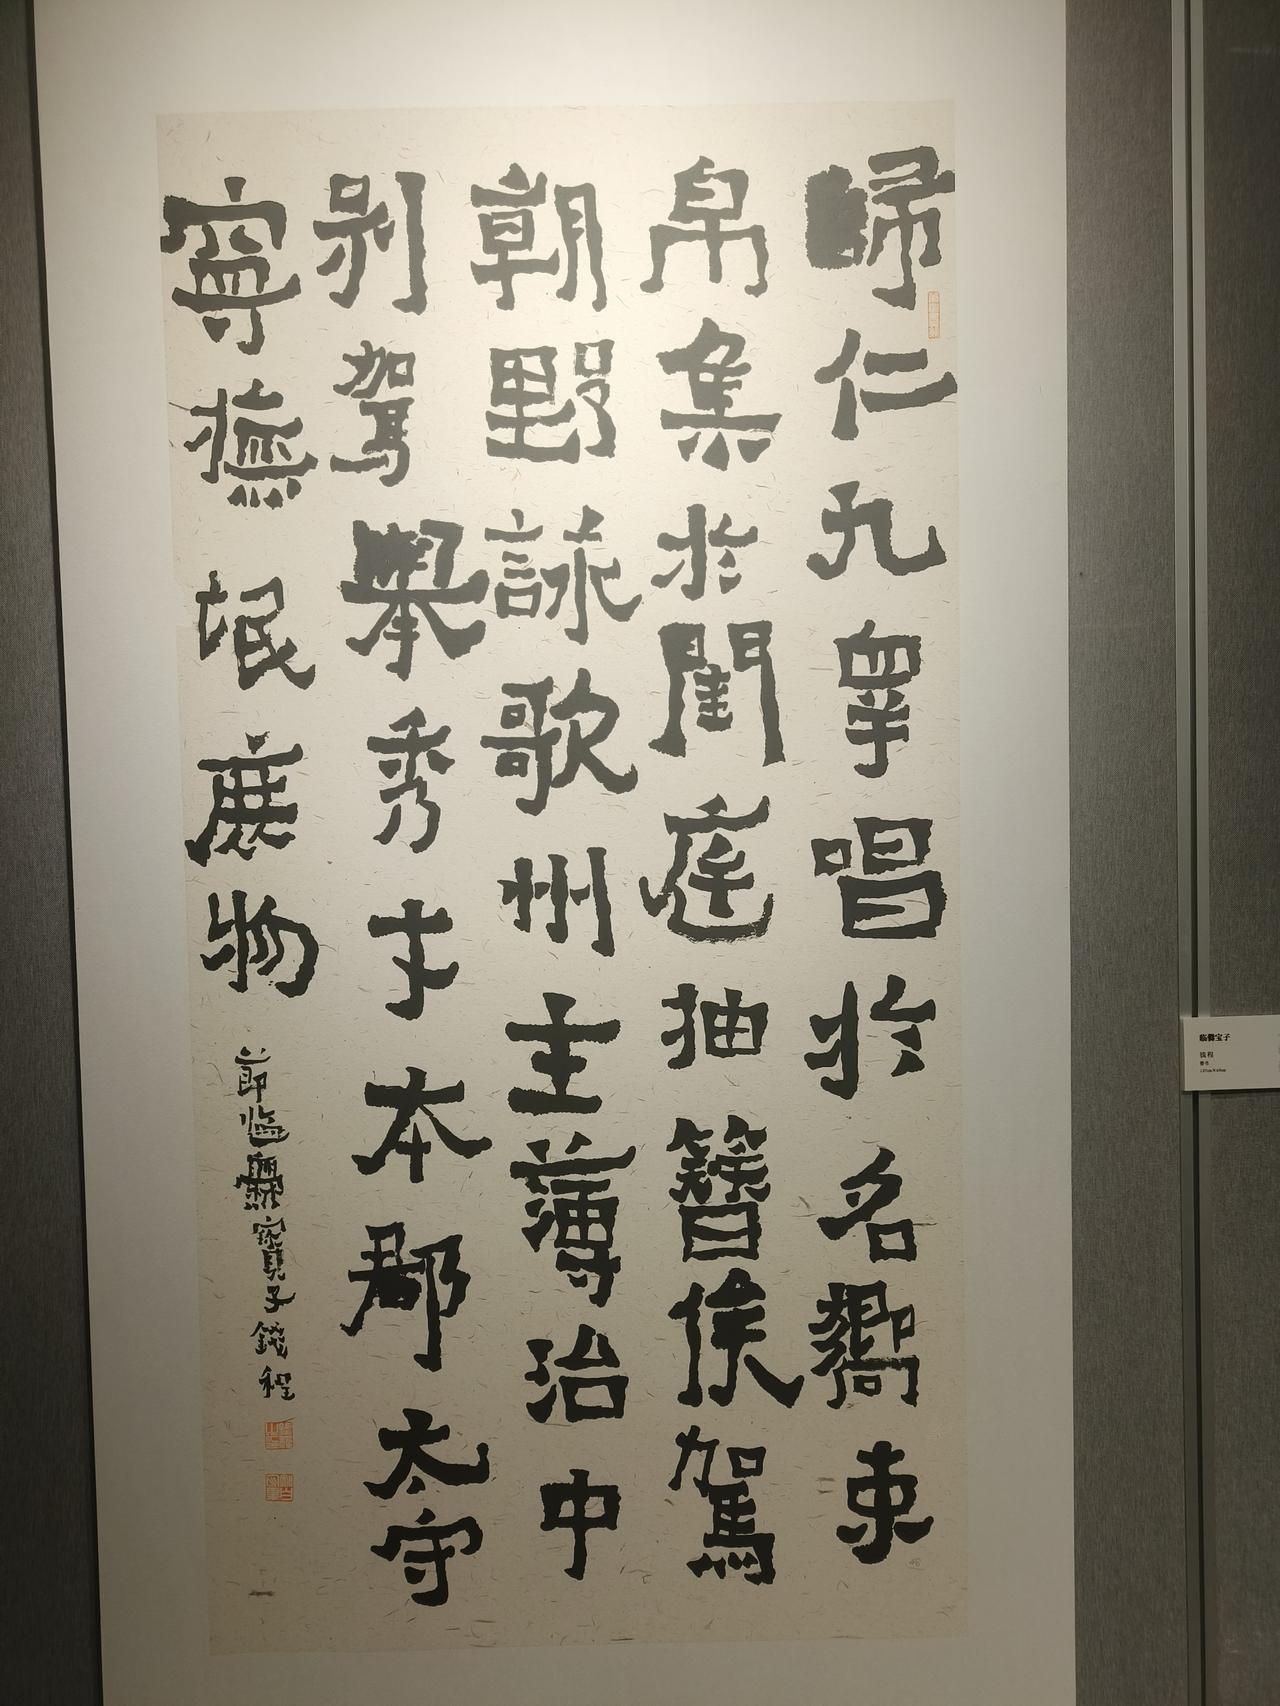 歸仁九睪唱於名嚮束
帛集於閨庭抽簪俟駕
朝野詠歌州主薄治中
别駕舉秀才本郡太守
寧撫氓庶物
節臨爨寶子錢程
临爨宝子
钱程